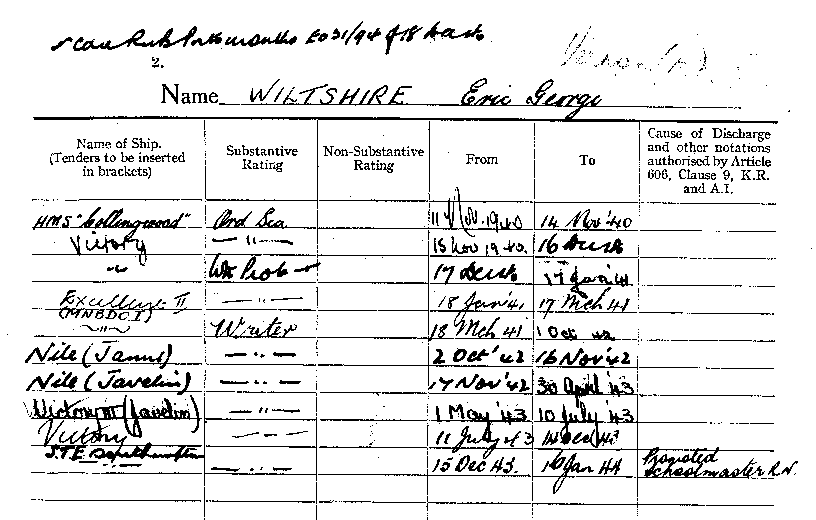 2.
Name WILTSHIRE Eric George
Name of Ship. (Tenders to be inserted in brackets) Substantive Rating Non-Substantive Rating From To Cause of Discharge and other notations authorised by Article 606, Clause 9, K.R. and A.I.
HMS "Collingwood" Ord Sea 11 Nov. 1940 14 Nov '40
Victory — " — 15 Nov 1940. 16 Dec
" Wr Prob 17 Dec 17 Jan '41
Excellent II — " — 18 Jan '41 17 Mch 41
(MNBDO I)
— " — Writer 18 Mch 41 1 Oct 42
Nile (Janus) — " — 2 Oct '42 16 Nov '42
Nile (Javelin) — " — 17 Nov '42 30 April '43
Victory III (Javelin) — " — 1 May '43 10 July '43
Victory — " — 11 July 43 14 Dec 43
S.T.E. Southampton — " — 15 Dec 43. 16 Jan 44 Promoted Schoolmaster R.N.